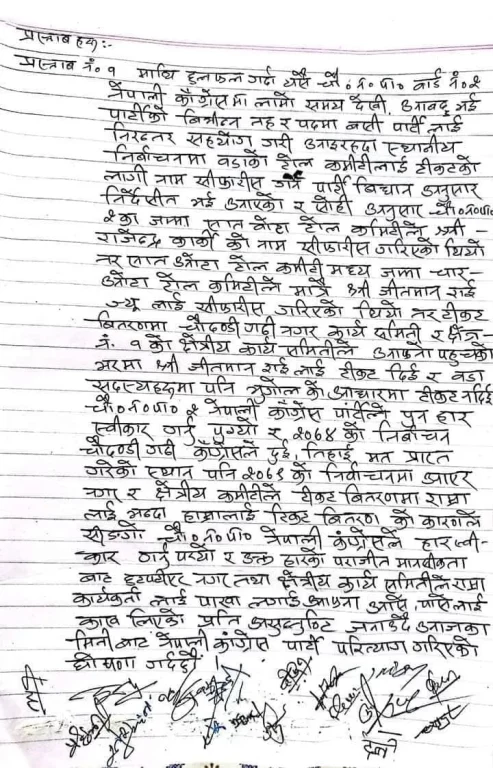 प्रस्ताव हरू:-
प्रस्ताव नं. १ माथि छलफल गर्दा यस चौ.न.पा. वार्ड नं.२
नेपाली काँग्रेसमा लामो समय देखी, आवद्द भई
पार्टीको विभिन्न तह र पदमा बसी पार्टी लाई
निरन्तर सहयोग गरी आइरहदा स्थानीय
निर्वाचनमा वडाको टोल कमिटीलाई टीकटको
लागी नाम सीफारीस गर्न पार्टी विधान अनुसार
निर्देसीत भई आएको र सोही अनुसार चौ.न.पा.
२ का जम्मा सात वोटा टोल कमिटीले श्री -
राजेन्द्र कार्की को नाम सीफारीस गरिएको थियो
तर सात ओटा टोल कमिटी मध्य जम्मा चार-
ओटा टोल कमिटीले मात्रै श्री जीतमान राई
ज्यू लाई सीफारीस गरिएको थियो तर टीकट
बितरणमा चौदण्डी गढी नगर कार्य समिती र क्षेत्र-
नं. १ को क्षेत्रीय कार्य समितीले आफ्नो पहुचको
भरमा श्री जीतमान राई लाई टीकट दिई र वडा
सदस्यहरूमा पनि भुगोल को आधारमा टीकट नदिई
चौ.न.पा. २ नेपाली काँग्रेस पार्टीले पुन हार
स्वीकार गर्नु पुग्यो र २०७४ को निर्वाचन
चौदण्डी गढी काँग्रेसले दुई, तिहाई मत प्राप्त
गरेको स्थान पनि २०७९ को निर्वाचनमा आएर
नगर र क्षेत्रीय कमीटीले टीकट बितरणमा राम्रा
लाई भन्दा हाम्रालाई टिकट बितरण को कारणले
सीङ्गो चौ.न.पा. नेपाली कंग्रेसले हार स्वी-
कार गर्नु पर्‍यो र उक्त हारको पराजीत मानसीकता
बाट नगर तथा क्षेत्रीय कार्य समितीले राम्रा
कार्यकर्ता लाई पाखा लगाई आफ्ना आसे, पासेलाई
काख लिएको प्रति असन्तुष्टि जनाउँदै आजका
मिती बाट नेपाली कांग्रेस पार्टी परित्याग गरिएको
घोषणा गर्दछौ।